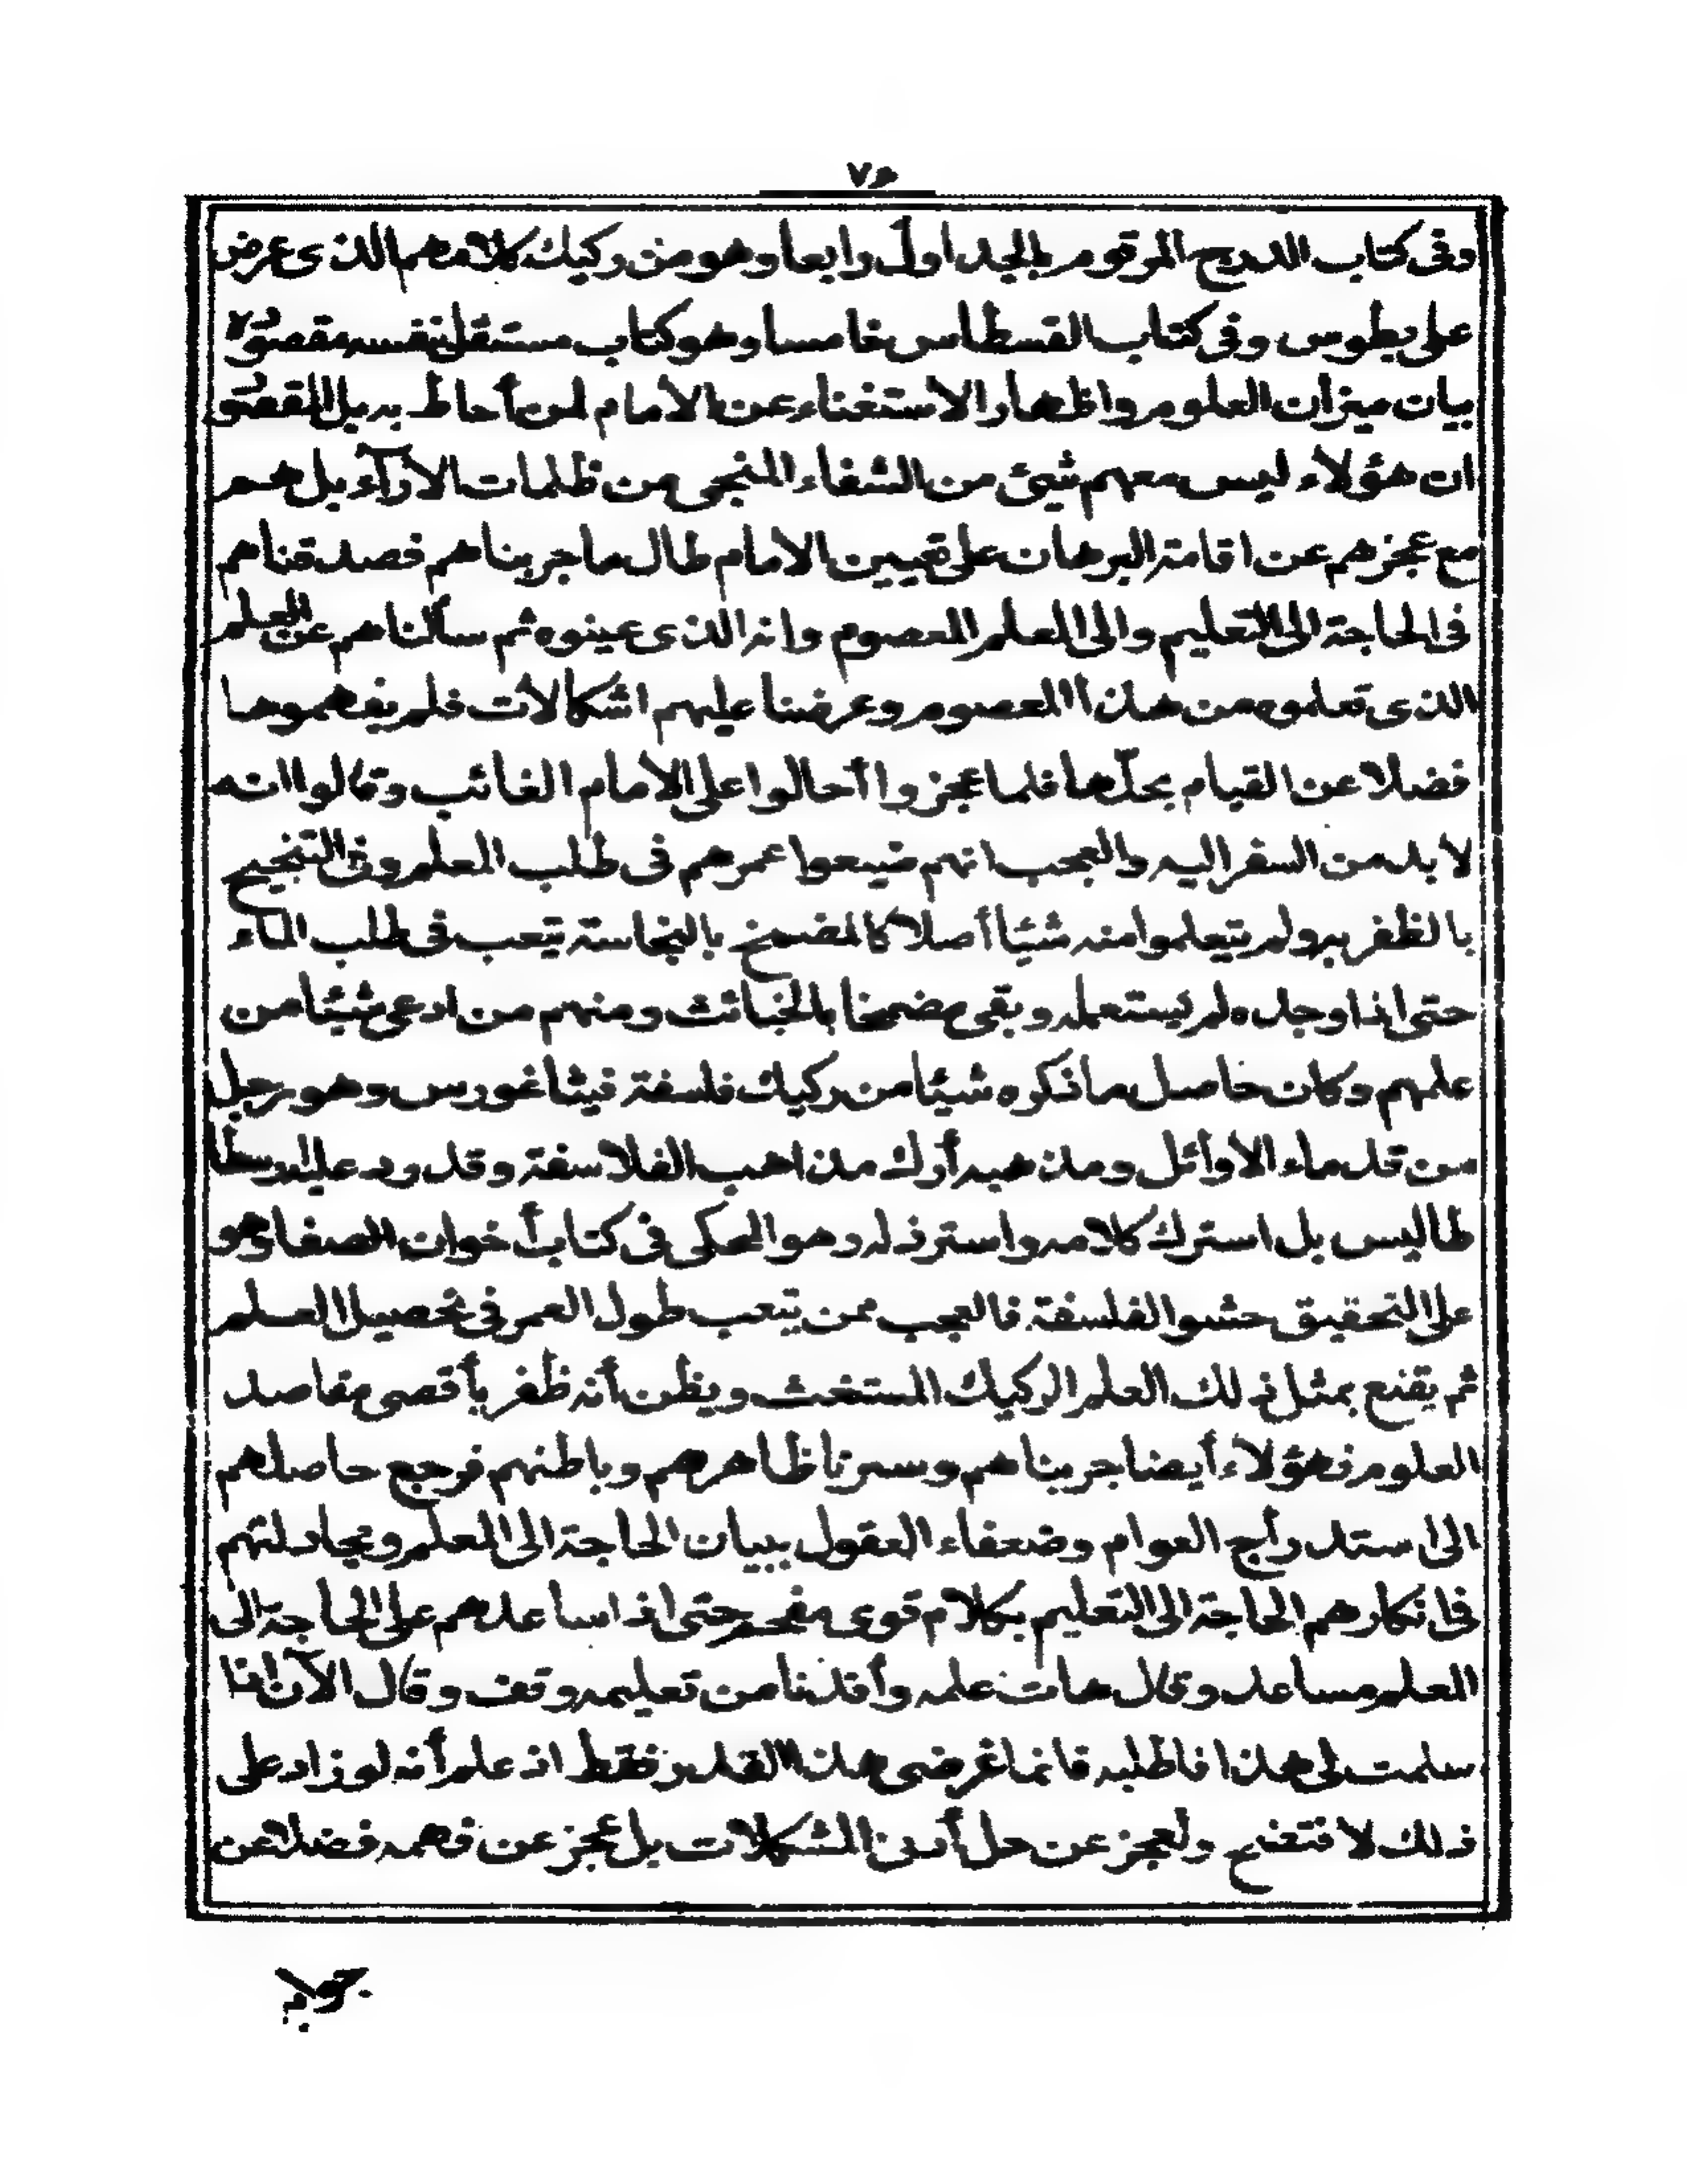 ٧٥
وفى كتاب الدرج المرقوم بالجداول رابعا وهو من ركيك كلامهم الذى عرض
على بطوس وفى كتاب القسطاس خامسا وهو كتاب مستقل بنفسه مقصوده
بيان ميزان العلوم واظهار الاستغناء عن الامام لمن أحاط به بل المقصود
ان هؤلاء ليس معهم شيئ من الشفاء المنجى من ظلمات الآراء بل هم
مع عجزهم عن اقامة البرهان على تعيين الامام طال ما جربناهم فصدقناهم
فى الحاجة الى التعليم والى المعلم المعصوم وانه الذى عينوه ثم سألناهم عن العلم
الذى تعلموه من هذا المعصوم وعرضنا عليهم اشكالات فلم يفهموها
فضلا عن القيام بحلّها فلما عجزوا أحالوا على الأمام الغائب وقالوا انه
لا بد من السفر اليه والعجب انهم ضيعوا عمرهم فى طلب المعلم وفى التبجيح
بالظفر به ولم يتعلموا منه شيئا أصلا كالمضمخ بالنجاسة يتعب فى طلب الماء
حتى اذا وجده لم يستعمله وبقى مضمخا بالخبائث ومنهم من ادعى شيئا من
علمهم وكان حاصل ما ذكره شيئا من ركيك فلسفة فيثاغورس وهو رجل
من قدماء الأوائل ومذهبه أرك مذاهب الفلاسفة وقد رد عليه ارسطا
طاليس بل استرك كلامه واسترذله وهو المحكى فى كتاب أخوان الصفا وهو
على التحقيق حشو الفلسفة فالعجب ممن يتعب طول العمر فى تحصيل العلم
ثم يقنع بمثل ذلك العلم الركيك المستغث ويظن أنه ظفر بأقصى مقاصد
العلوم فهؤلاء أيضا جربناهم وسبرنا ظاهرهم وباطنهم فرجع حاصلهم
الى استدراج العوام وضعفاء العقول ببيان الحاجة الى المعلم ومجادلتهم
فى انكارهم الحاجة الى التعليم بكلام قوى مفحم حتى اذا ساعدهم على الحاجة الى
المعلم مساعد وقال هات علمه وأفدنا من تعليمه وقف وقال الآن اذا
سلمت لى هذا فاطلبه فانما غرضى هذا القدر فقط اذ علم أنه لو زاد على
ذلك لافتضح ولعجز عن حل أدنى المشكلات بل عجز عن فهمه فضلا عن
جوابه